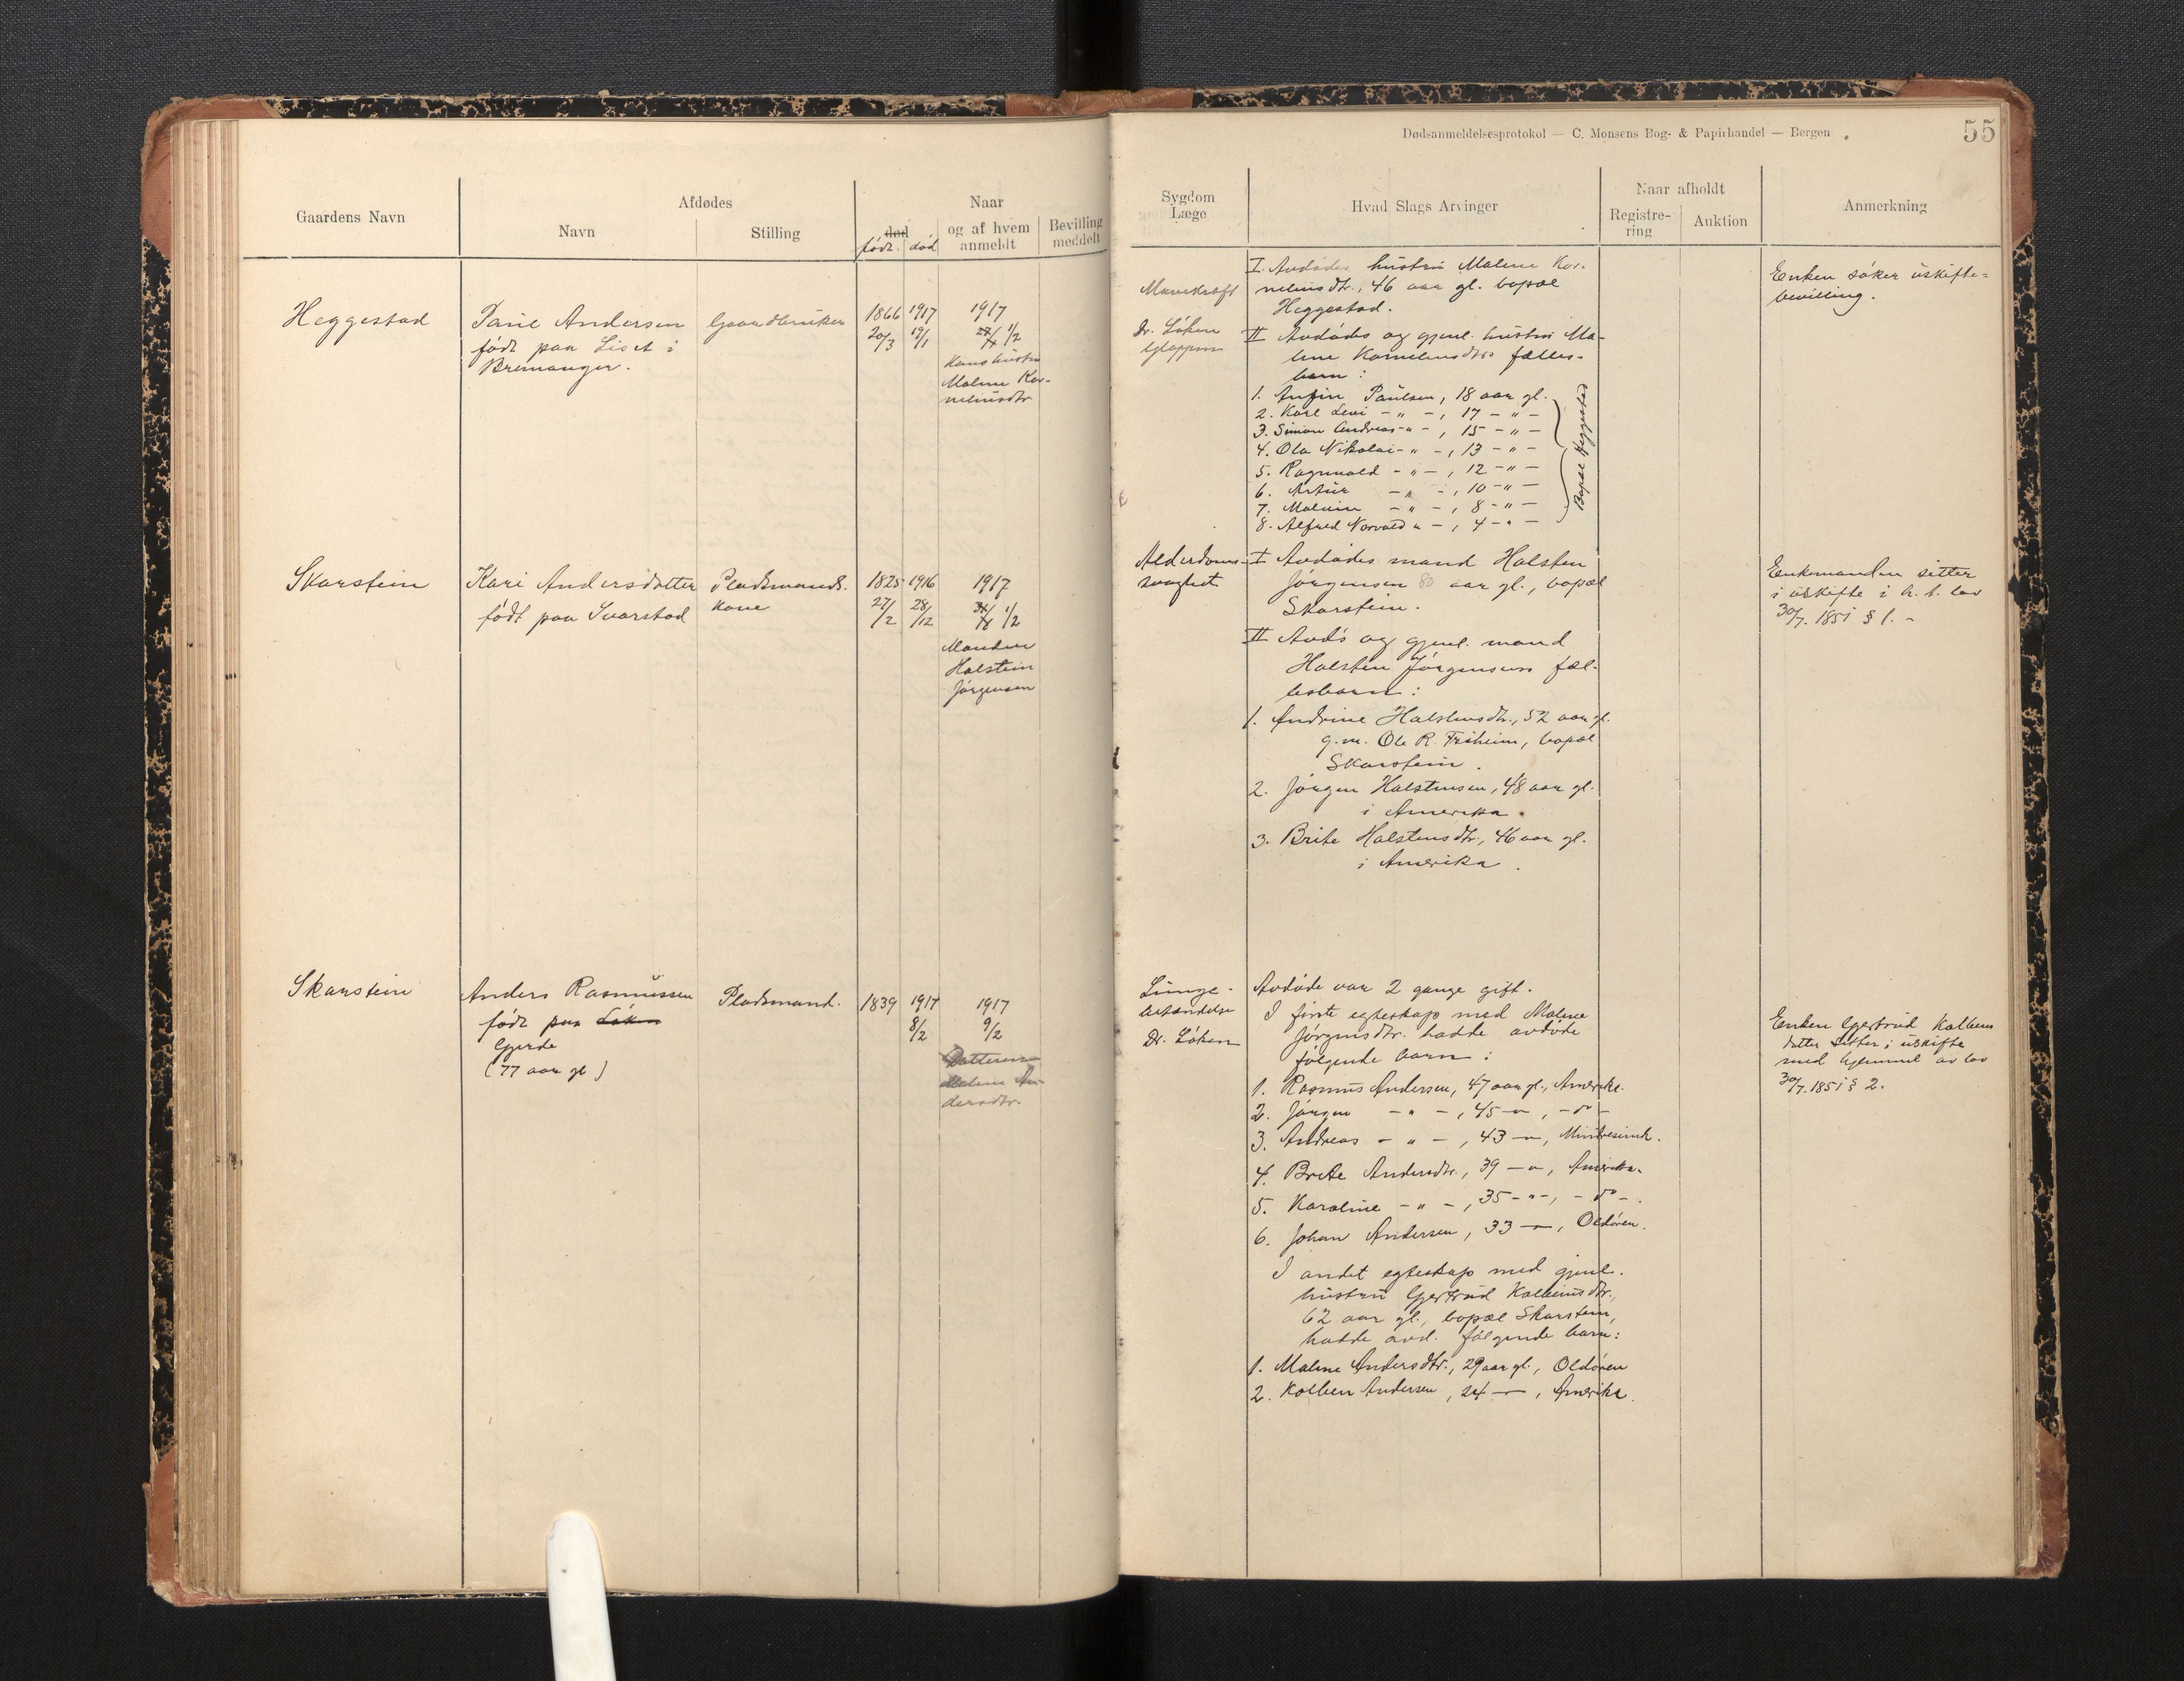 Dødsanmeldelsesprotokol — C. Monsens Bog- & Papirhandel — Bergen
55
Gaardens Navn
Afdødes
Navn
Stilling
Naar
død
født død
og af hvem
anmeldt
Bevilling
meddelt
Sygdom
Læge
Hvad Slags Arvinger
Naar afholdt
Registre-
ring
Auktion
Anmerkning
Heggestad
Paul Andersen
født paa Liset i
Bremanger.
Gaardbruker
1866 1917
20/3 19/1
1917
1/2
Hans hustru
Malene Kor-
neliusdtr
Mavekræft
Dr. Løken
Gloppen
I. Avdødes hustru Malene Kor-
neliusdtr., 46 aar gl. bopæl
Heggestad.
II Avdødes og gjenl. hustru Ma-
lene Korneliusdtrs fælles-
barn:
1. Anfin Paulsen, 18 aar gl.
2. Karl Levi - " -, 17 - " -
3. Simon Andreas - " -, 15 - " -
4. Ola Nikolai - " -, 13 - " -
5. Ragnvald - " -, 12 - " -
6. Artur - " -, 10 - " -
7. Malvin - " -, 8 - " -
8. Alfred Norvald " -, 4 - " -
Bopæl Heggestad
Enken søker uskifte-
bevilling.
Skarstein
Kari Andersdatter
født paa Svarstad
Pladsmands.
kone
1825 1916
27/2 28/12
1917
1/2
Manden
Halstein
Jørgensen
Alderdoms-
svaghet
I Avdødes mand Halsten
Jørgensen 80 aar gl., bopæl
Skarstein.
II Avd's og gjenl. mand
Halsten Jørgensens fæl-
lesbarn:
1. Andrine Halstensdtr., 52 aar gl.
g.m. Ole R. Friheim, bopæl
Skarstein.
2. Jørgen Halstensen, 48 aar gl.
i Amerika.
3. Brite Halstensdtr., 46 aar gl.
i Amerika.
Enkemanden sitter
i uskifte i h. t. lov
30/7. 1851 § 1. -
Skarstein
Anders Rasmussen
født paa
Gjerde
(77 aar gl)
Pladsmand.
1839 1917
8/2
1917
9/2
Datteren
Malene An-
dersdtr.
Lunge-
betændelse
Dr. Løken
Avdøde var 2 gange gift.
I første egteskap med Malene
Jørgensdtr. hadde avdøde
følgende barn:
1. Rasmus Andersen, 47 aar gl., Amerika.
2. Jørgen - " -, 45 - " -, - do -
3. Andreas - " -, 43 - " -,
4. Brite Andersdtr., 39 - " -, Amerika.
5. Karoline - " -, 35 - " -, - do -.
6. Johan Andersen, 33 - " -, Oldøren.
I andet egteskap med gjenl.
hustru Gjertrud Kolbeinsdtr.,
62 aar gl., bopæl Skarstein,
hadde avd. følgende barn:
1. Malene Andersdtr., 29 aar gl., Oldøren
2. Kolben Andersen, 24 - " -, Amerika.
Enken Gjertrud Kolbens
datter sitter i uskifte
med hjemmel av lov
30/7. 1851 § 2.